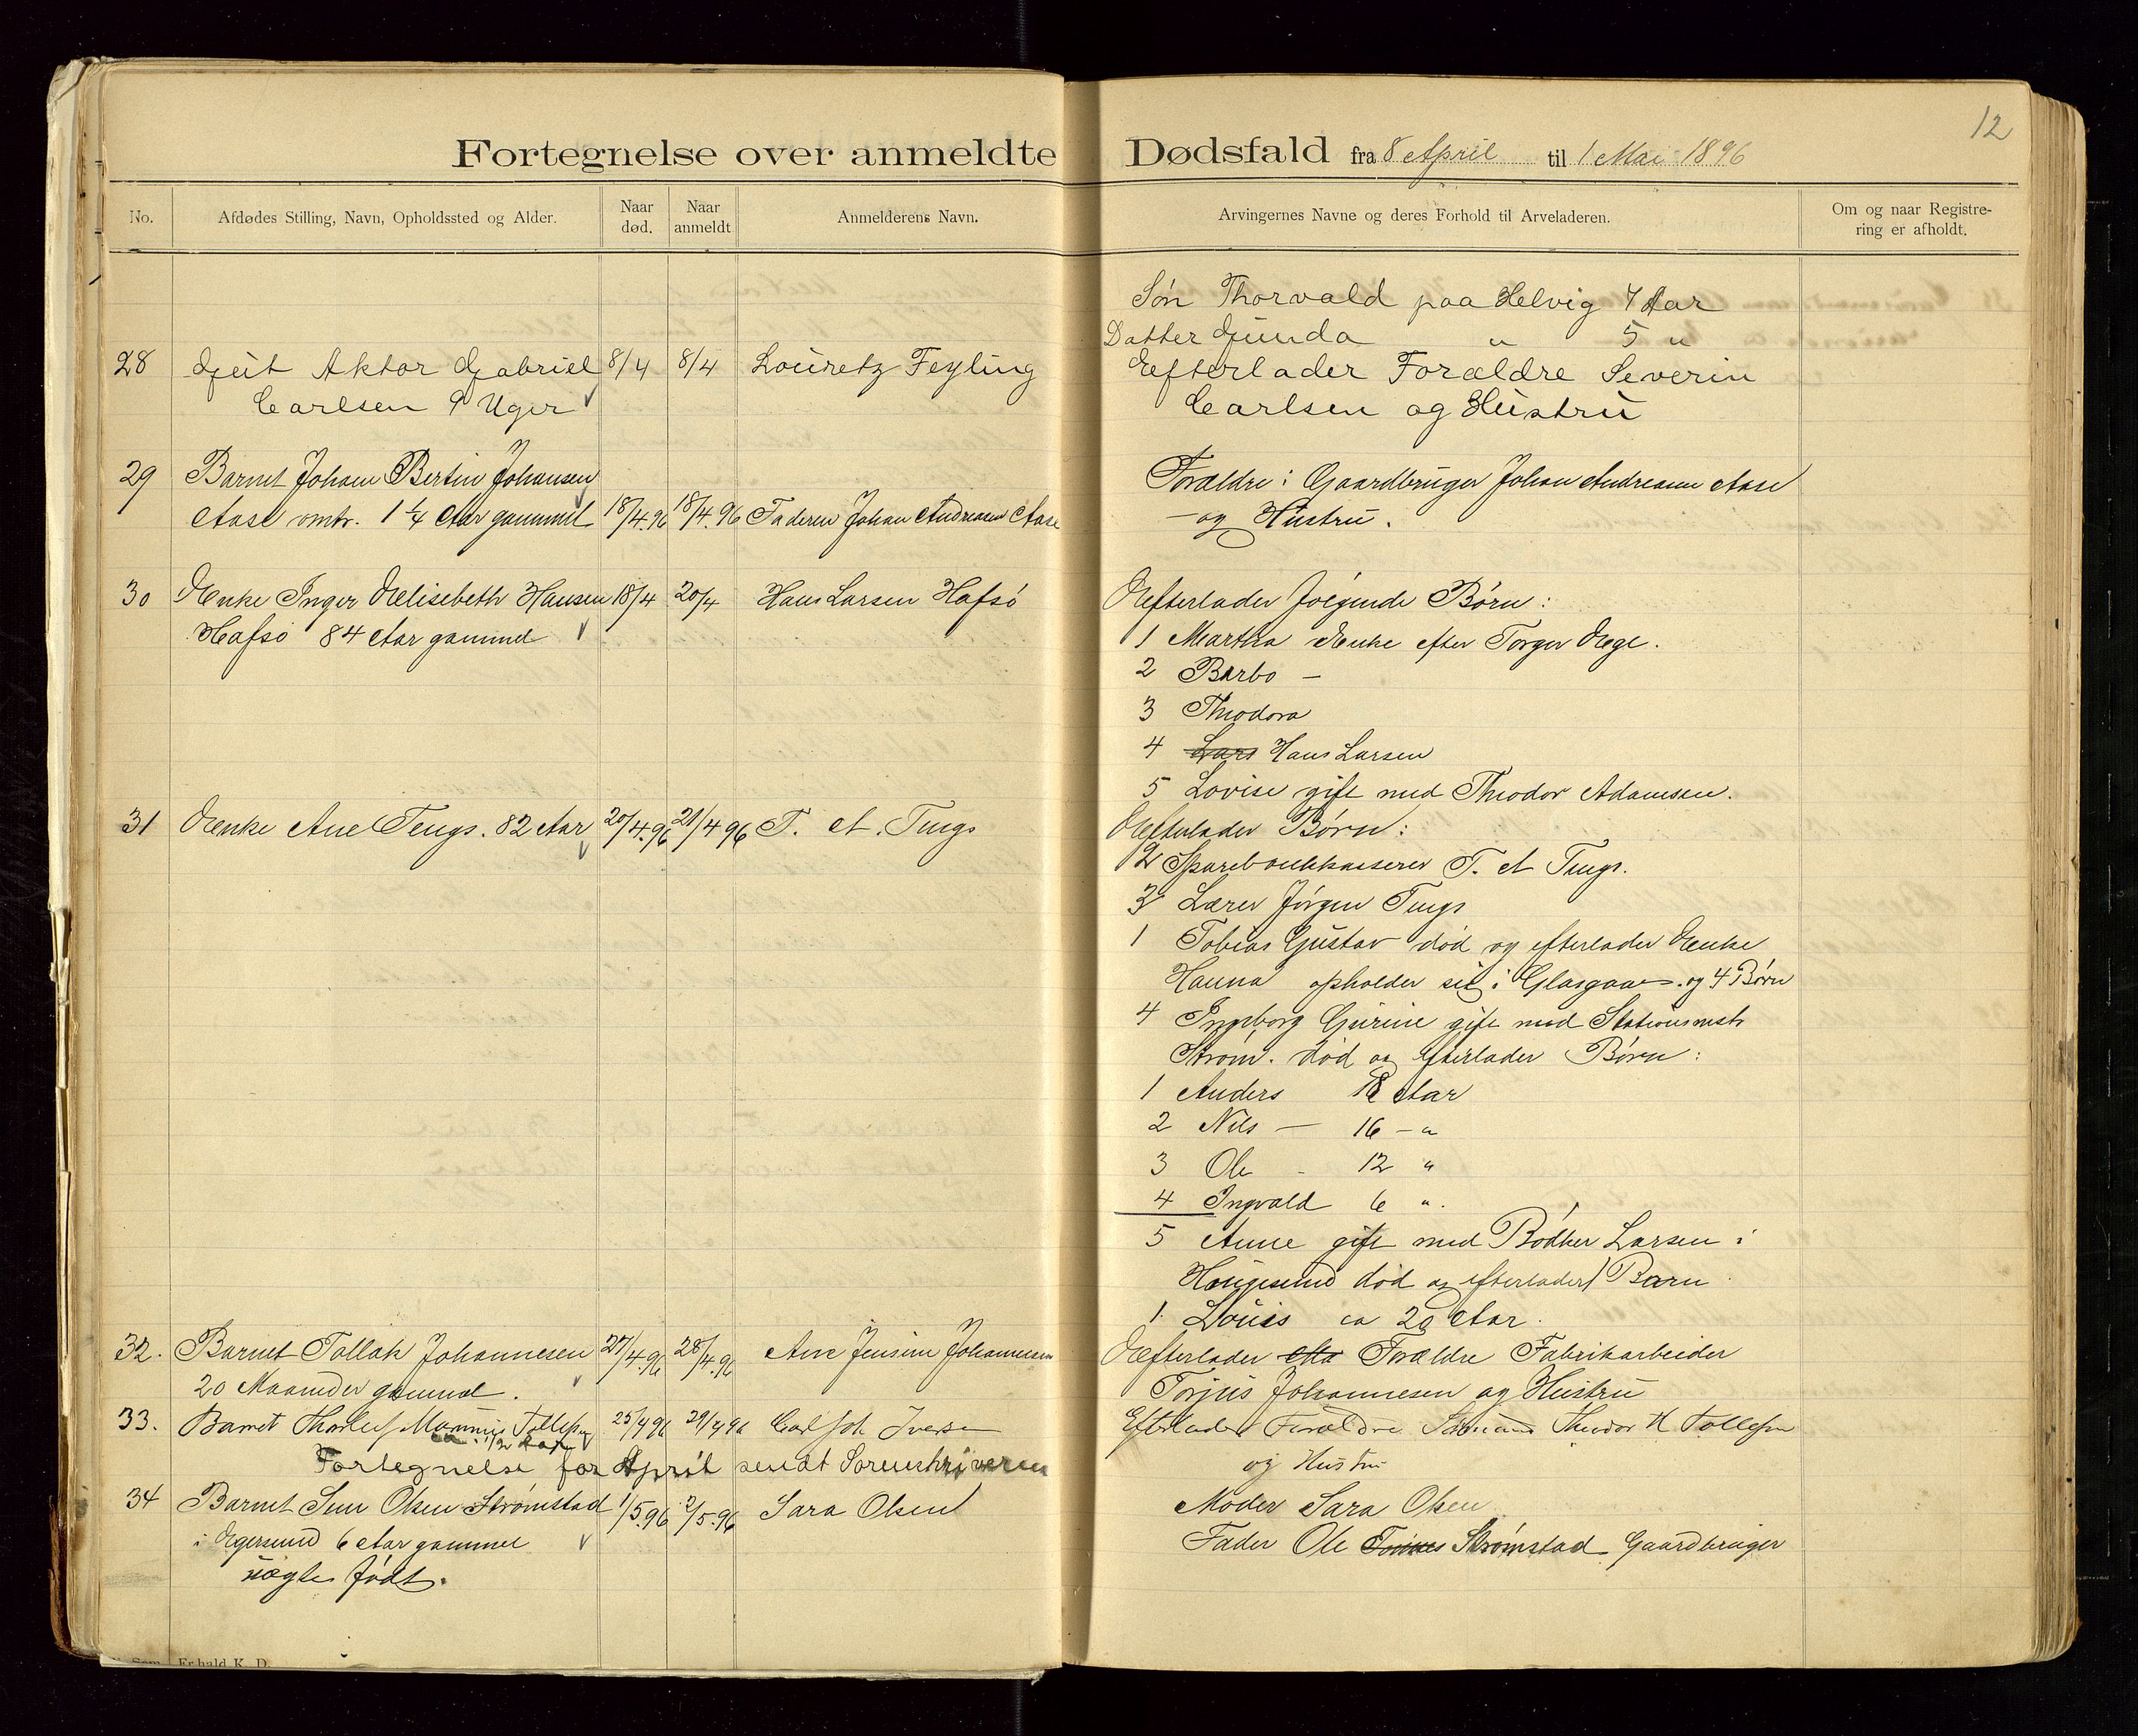 12
Fortegnelse over anmeldte Dødsfald fra 8 April til 1 Mai 1896
No.
Afdødes Stilling, Navn, Opholdssted og Alder.
Naar død.
Naar anmeldt
Anmelderens Navn.
Arvingernes Navne og deres Forhold til Arveladeren.
Om og naar Registre-
ring er afholdt.
Søn Thorvald paa Helvig 7 Aar
Datter Gunda " 5 "
28 Gut Aktor Gabriel 8/4 8/4 Louretz Feyling Efterlader Forældre Severin
Carlsen 9 Uger Carlsen og Hustru
29 Barnet Johan Bertin Johansen Forældre: Gaardbruger Johan Andreasen Aase
Aase omtr. 1 1/4 Aar gammel 18/4.96 18/4.96 Faderen Johan Andreasen Aase og Hustru.
30 Enke Inger Elisebeth Hansen 18/4 20/4 Hans Larsen Hafsö Efterlader følgende Børn:
Hafsö 84 Aar gammel 1 Martha Enke efter Torger Ege.
2 Barbo —
3 Theodora
4 Lars Hans Larsen
5 Lovise gift med Theodor Adamsen.
31 Enke Ane Tengs. 82 Aar 20/4.96 21/4 96 T. A. Tengs Efterlader Børn:
2 Sparebankkasserer T. A Tengs.
3 Lærer Jörgen Tengs
1 Tobias Gustav död og efterlader Enke
Hanna opholder sig i Glasgow. og 4 Børn
4 Ingeborg Gurine gift med Stationsmstr
Ström. död og efterlader Børn:
1 Anders 18 Aar
2 Nils — 16 — "
3 Ole - 12 "
4 Ingvald 6 ".
5 Anne gift med Bödker Larsen i
Haugesund död og efterlader 1 Barn
1. Louis ca 20 Aar.
32. Barnet Tollak Johannesen 27/4.96 28/4.96 Ane Jensine Johannesen Efterlader Forældre Fabrikarbeider
20 Maaneder gammel. Torjus Johannesen og Hustru
33. Barnet Thorleif Tollefsen 25/4 96 29/4 96 Carl Joh Iversen Efterlader Forældre Sömand Theodor H Tollefsen
ca. 1/2 Aar og Hustru
Fortegnelse for April sendt Sorenskriveren
34 Barnet Olsen Strømstad 1/5.96 2/5.96 Sara Olsen Moder Sara Olsen
i Egersund 6 Aar gammel Fader Ole Strømstad Gaardbruger
uægte födt.